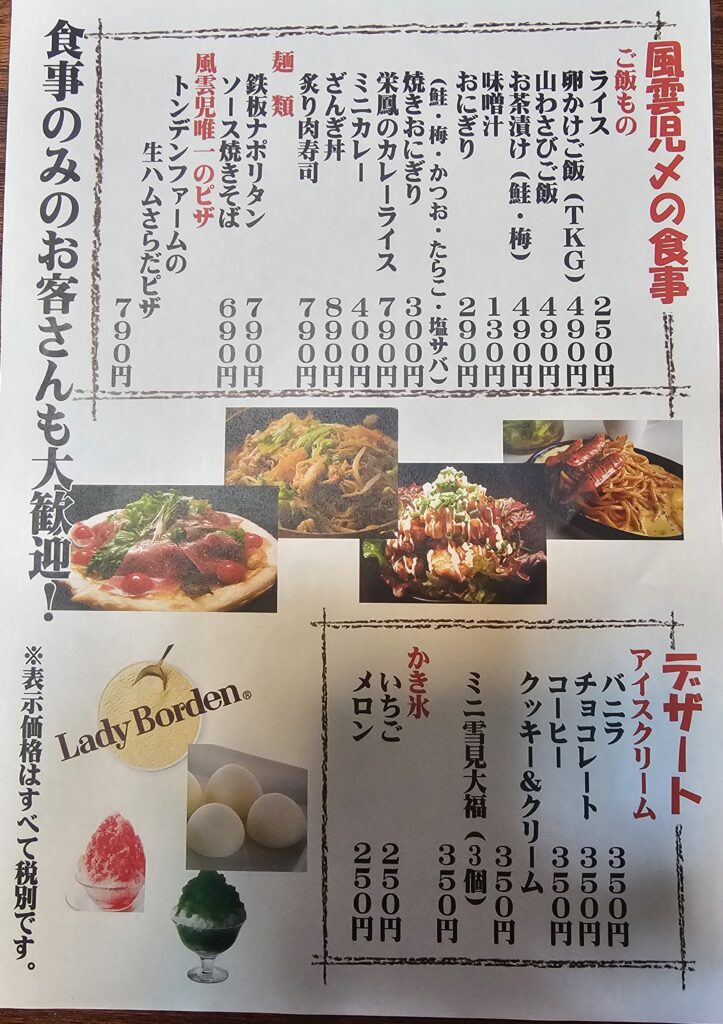 風雲児〆の食事
ご飯もの
ライス 250円
卵かけご飯(TKG) 490円
山わさびご飯 490円
お茶漬け(鮭・梅) 490円
味噌汁 130円
おにぎり 290円
(鮭・梅・かつお・たらこ・塩サバ)
焼きおにぎり 300円
栄鳳のカレーライス 790円
ミニカレー 400円
ざんぎ丼 890円
炙り肉寿司 790円
麺類
鉄板ナポリタン 790円
ソース焼きそば 690円
風雲児唯一のピザ
トンデンファームの
生ハムさらだピザ 790円
食事のみのお客さんも大歓迎!
デザート
アイスクリーム
バニラ 350円
チョコレート 350円
コーヒー 350円
クッキー&クリーム 350円
ミニ雪見大福(3個) 350円
かき氷
いちご 250円
メロン 250円
Lady Borden®
※表示価格はすべて税別です。